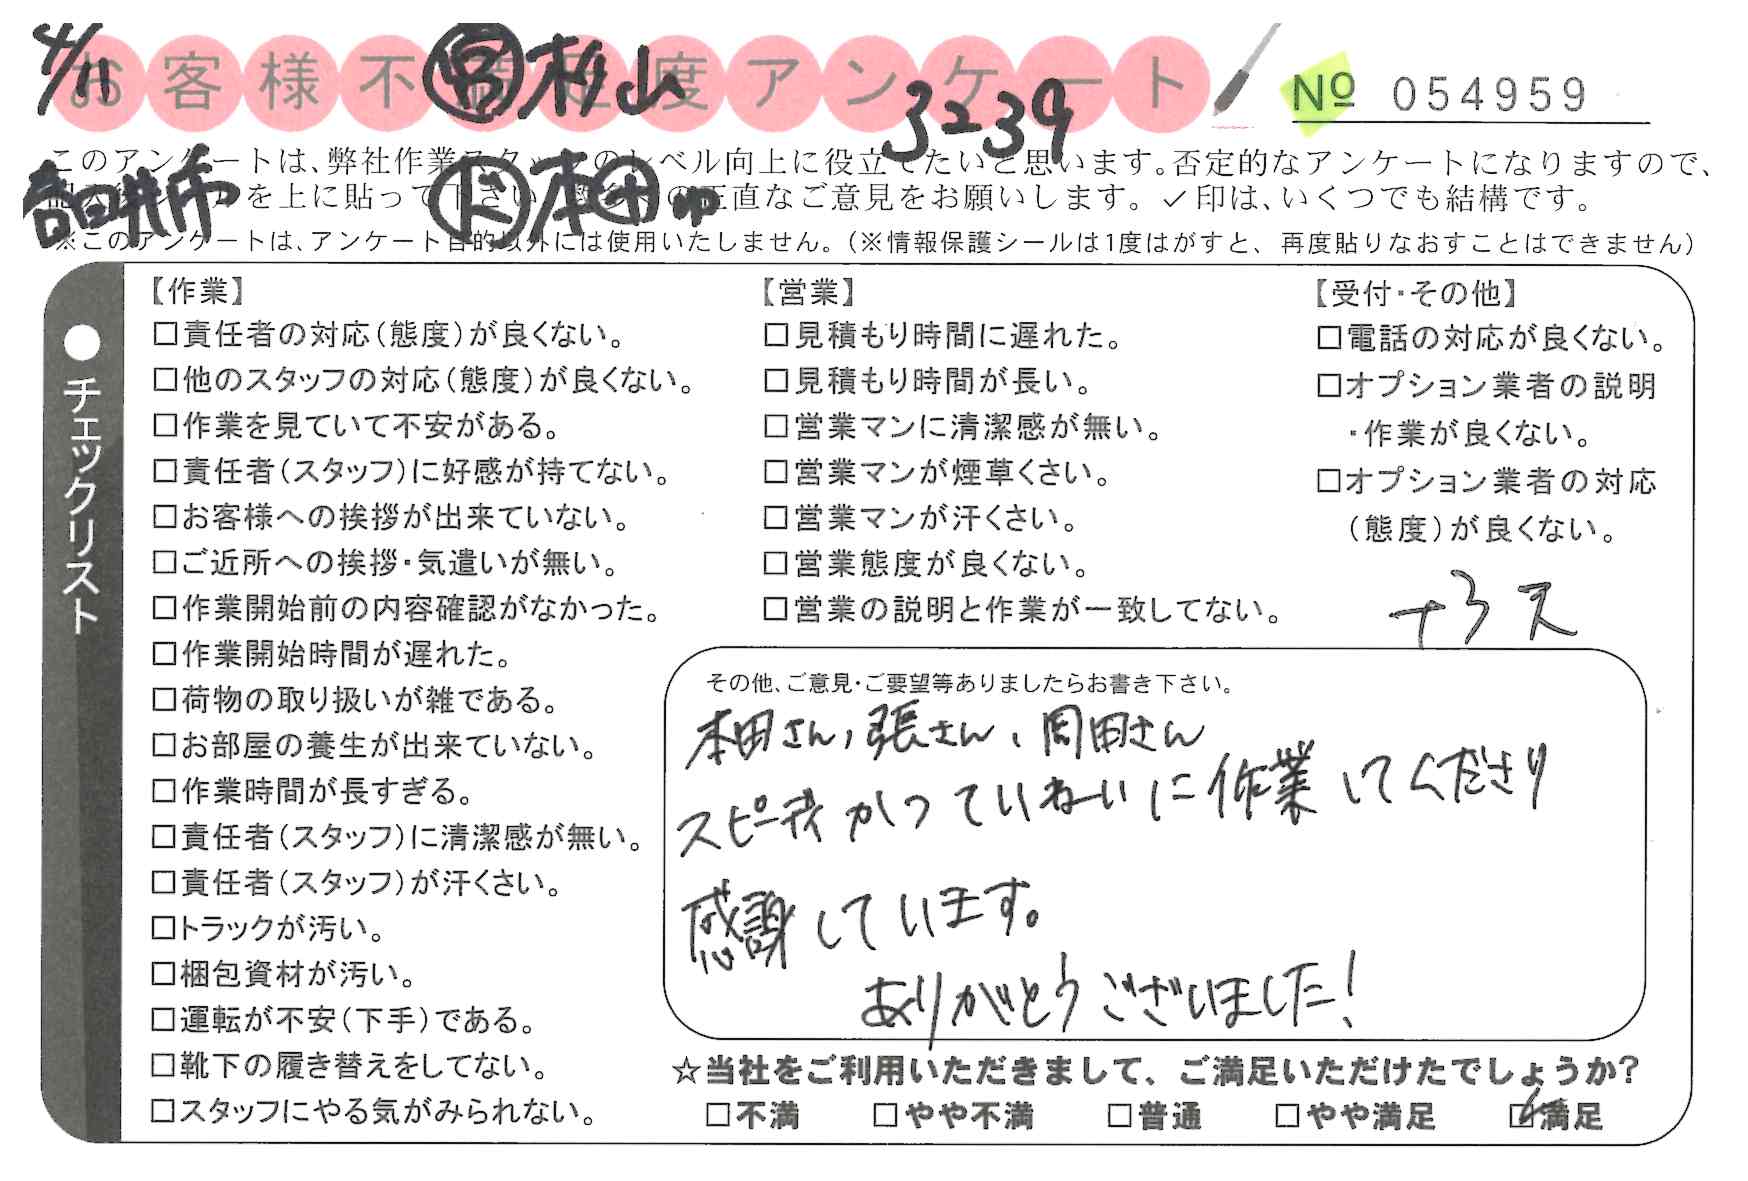 4/11 営 杉山
お客様不満足度アンケート
3239
№ 054959
このアンケートは、弊社作業スタッフのレベル向上に役立てたいと思います。否定的なアンケートになりますので、
ルを上に貼って下さい の正直なご意見をお願いします。✓印は、いくつでも結構です。
春日井市 ド 本田
※このアンケートは、アンケート目的以外には使用いたしません。（※情報保護シールは1度はがすと、再度貼りなおすことはできません）
●チェックリスト
【作業】
□責任者の対応（態度）が良くない。
□他のスタッフの対応（態度）が良くない。
□作業を見ていて不安がある。
□責任者（スタッフ）に好感が持てない。
□お客様への挨拶が出来ていない。
□ご近所への挨拶・気遣いが無い。
□作業開始前の内容確認がなかった。
□作業開始時間が遅れた。
□荷物の取り扱いが雑である。
□お部屋の養生が出来ていない。
□作業時間が長すぎる。
□責任者（スタッフ）に清潔感が無い。
□責任者（スタッフ）が汗くさい。
□トラックが汚い。
□梱包資材が汚い。
□運転が不安（下手）である。
□靴下の履き替えをしてない。
□スタッフにやる気がみられない。
【営業】
□見積もり時間に遅れた。
□見積もり時間が長い。
□営業マンに清潔感が無い。
□営業マンが煙草くさい。
□営業マンが汗くさい。
□営業態度が良くない。
□営業の説明と作業が一致してない。
【受付・その他】
□電話の対応が良くない。
□オプション業者の説明
・作業が良くない。
□オプション業者の対応
（態度）が良くない。
+3ス
その他、ご意見・ご要望等ありましたらお書き下さい。
本田さん、張さん、岡田さん
スピーディかつていねいに作業してくださり
感謝しています。
ありがとうございました！
☆当社をご利用いただきまして、ご満足いただけたでしょうか？
□不満 □やや不満 □普通 □やや満足 ☑満足